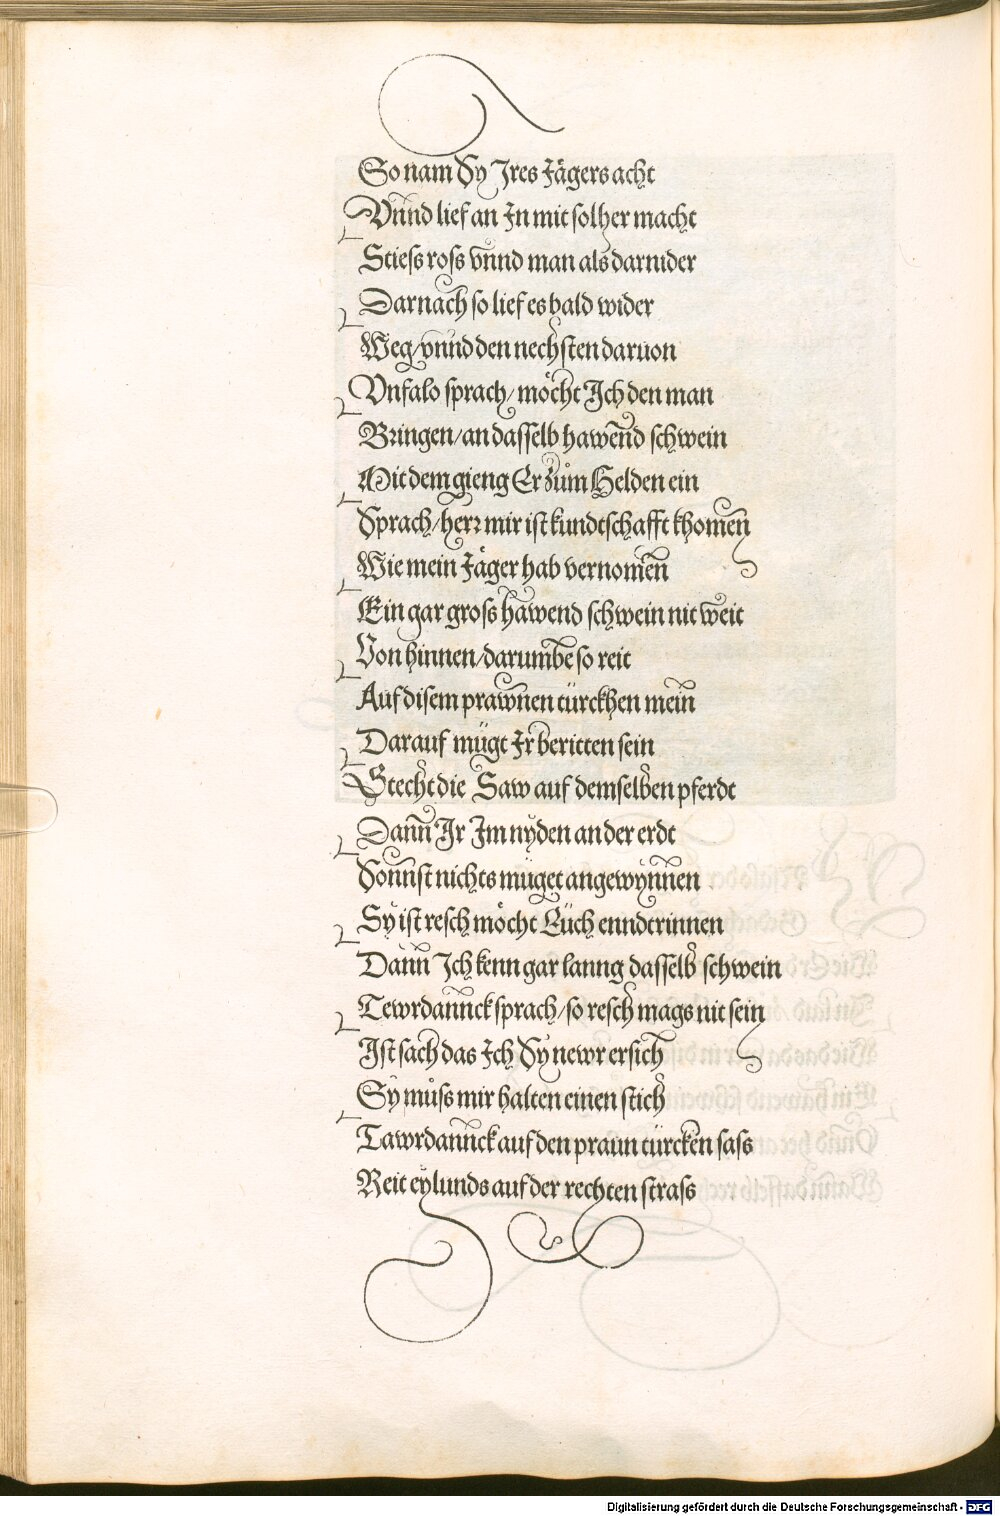 So nam Sy Ires Jägers acht
Vnnd lief an In mit solher macht
Stiess ross vnnd man als darnider
Darnach so lief es bald wider
Weg/vnnd den nechsten daruon
Vnfalo sprach/möcht Ich den man
Bringen/an dasselb hawend schwein
Mit dem gieng Er zům Helden ein
Sprach/herr mir ist kundtschafft khomen
Wie mein Jäger hab vernomen
Ein gar gross hawend schwein nit weit
Von hinnen/darumbe so reit
Auf disem prawnen türckhen mein
Darauf mügt Ir beritten sein
Stecht die Saw auf demselben pferdt
Dann Ir Im nyden an der erdt
Sonnst nichts müget angewynnen
Sy ist resch möcht Eüch enndtrinnen
Dann Ich kenn gar lanng dasselb schwein
Tewrdannck sprach/so resch mags nit sein
Ist sach das Ich Sy newr ersich
Sy můss mir halten einen stich
Tawrdannck auf den praun türcken sass
Reit eylunds auf der rechten strass
Digitalisierung gefördert durch die Deutsche Forschungsgemeinschaft - DFG